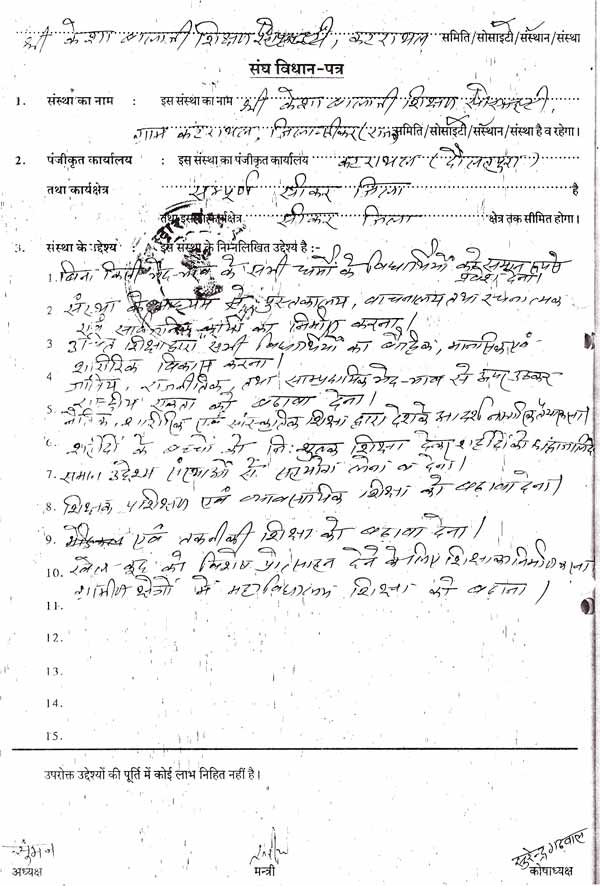 श्री केशा बालाजी शिक्षण सोसायटी, कटराथल समिति/सोसाइटी/संस्थान/संस्था
संघ विधान-पत्र
1. संस्था का नाम : इस संस्था का नाम श्री केशा बालाजी शिक्षण सोसायटी,
ग्राम कटराथल, जिला-सीकर (राज.) समिति/सोसाइटी/संस्थान/संस्था है व रहेगा।
2. पंजीकृत कार्यालय : इस संस्था का पंजीकृत कार्यालय कटराथल (दौलतपुरा)
तथा कार्यक्षेत्र सम्पूर्ण सीकर जिला है
तथा इसका कार्यक्षेत्र सीकर जिला क्षेत्र तक सीमित होगा।
3. संस्था के उद्देश्य : इस संस्था के निम्नलिखित उद्देश्य है :-
1. बिना किसी भेद-भाव के सभी धर्मो के विधार्थियों को समान रूप से
प्रवेश देना।
2 संस्था के माध्यम से पुस्तकालय, वाचनालय तथा रचनात्मक
एवं सार्वजनिक का निर्माण करना।
3 उन्नत शिक्षा द्वारा सभी विधार्थियों का बौद्धिक, मानसिक एवं
शारीरिक विकास करना।
4 जातिय, राजनीतिक, तथा साम्प्रदायिक भेद-भाव से ऊपर उठकर
राष्ट्रीय एकता को बढावा देना।
5. नैतिक, शारीरिक एवं सांस्कृतिक शिक्षा द्वारा देश के आदर्श नागरिक तैयार करना।
6. शहीदों के बच्चों को नि:शुल्क शिक्षा देकर शहीदों को श्रद्धांजलि देना
7. समान उद्देश्य संस्थाओं से सहयोग लेना व देना।
8. शिक्षक प्रशिक्षण एवं व्यावसायिक शिक्षा को बढावा देना।
9. एवं तकनीकी शिक्षा को बढावा देना।
10. खेल-कूद को विशेष प्रोत्साहन देने के लिए शिक्षा का निर्माण करना
ग्रामीण क्षेत्रों में महाविधालय शिक्षा को बढाना।
11.
12.
13.
14.
15.
उपरोक्त उद्देश्यों की पूर्ति में कोई लाभ निहित नहीं है।
सुमन
सुरेन्द्र गढवाल
अध्यक्ष मन्त्री कोषाध्यक्ष